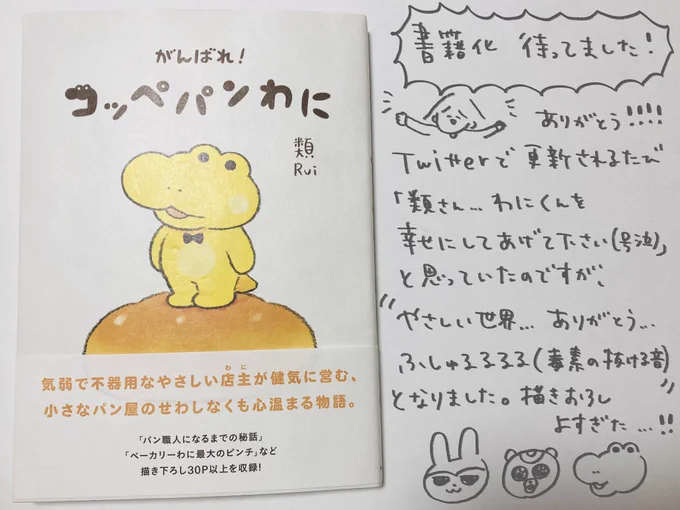 がんばれ！
コッペパンわに
類
Rui
気弱で不器用なやさしい店主が健気に営む、
わに
小さなパン屋のせわしなくも心温まる物語。
「パン職人になるまでの秘話」
「ベーカリーわに最大のピンチ」など
描き下ろし30P以上を収録！
書籍化 待ってました！
ありがとう!!!!
Twitterで更新されるたび
「類さん…わにくんを
幸せにしてあげて下さい(号泣)」
と思っていたのですが、
"やさしい世界…ありがとう…
ふしゅるるるる(毒素の抜ける音)"
となりました。描きおろし
よすぎた…!!